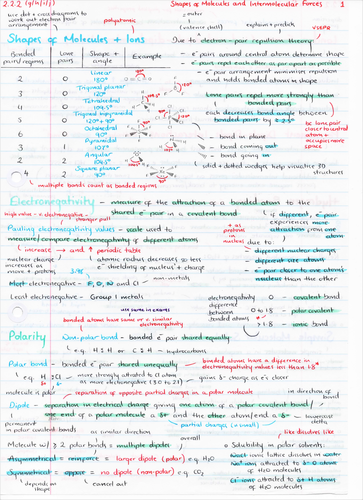 2.2.2 (g/h/i/j)
Shapes of Molecules and Intermolecular Forces 1
use dot + cross diagrams to work out electron pair arrangement
polyatomic
outer
(valence shell)
explain + predict
VSEPR
Shapes of Molecules + Ions
Due to electron-pair repulsion theory
Bonded pairs/regions
Lone pairs
Shape + angle
Example
- e⁻ pairs around central atom determine shape
- e⁻ pairs repel each other as far apart as possible
- e⁻ pair arrangement minimises repulsion and holds bonded atoms in shape
2 0 Linear 180°
3 0 Trigonal planar 120°
4 0 Tetrahedral 109.5°
5 0 Trigonal bipyramidal 120° + 90°
6 0 Octahedral 90°
3 1 Pyramidal 107°
2 2 Angular 104.5°
4 2 Square planar
Lone pairs repel more strongly than bonded pairs
each decreases bond angle between bonded pairs by ≈ 2.5°
bc lone pair closer to central atom + occupies more space
bond in plane
bond coming out
bond going in
solid + dotted wedges help visualise 3D structures
multiple bonds count as bonded regions
Electronegativity - measure of the attraction of a bonded atom to the shared e⁻ pair in a covalent bond
high value = electronegative
stronger pull
if different, e⁻ pair experiences more attraction from one atom
Pauling electronegativity values - scale used to measure/compare electronegativity of different atoms
+ as protons in nucleus
due to:
increase → and ↑ periodic table
- different nuclear charges
nuclear charge increases as more + protons
atomic radius decreases so less e⁻ shielding of nucleus + charge
- different size atoms
- e⁻ pair closer to one atom's nucleus than the other
Most electronegative - F, O, N and Cl
non-metals
Least electronegative - Group 1 metals
electronegativity difference between bonded atoms
0 - covalent bond
0 - 1.8 - polar covalent
>1.8 - ionic bond
use same in exams
bonded atoms have same or a similar electronegativity
Polarity
Non-polar bond - bonded e⁻ pair shared equally
e.g. H:H or C:H - hydrocarbons
Polar bond - bonded e⁻ pair shared unequally
bonded atoms have a difference in electronegativity values less than 1.8
e.g. H:Cl
more strongly attracted to Cl atom as more electronegative (3.0 to 2.1)
gains δ- charge as e's closer
molecule is polar
separation of opposite partial charges in a polar molecule
in direction of bond
Dipole - separation in electrical charge giving one atom of a polar covalent bond/one end of a polar molecule a δ+ and the other atom/end a δ-
lowercase delta
partial charge (+ small)
permanent in polar covalent bonds
as similar direction
overall
like dissolves like
Molecule w/ ≥ 2 polar bonds = multiple dipoles
Solubility in polar solvents:
Asymmetrical = reinforce = larger dipole (polar) e.g. H₂O
Symmetrical = oppose = no dipole (non-polar) e.g. CO₂
depends on shape
cancel out
NaCl ionic lattice dissolves in water
Na⁺ ions attracted to δ- O atoms of H₂O molecules
Cl⁻ ions attracted to δ+ H atoms of H₂O molecules